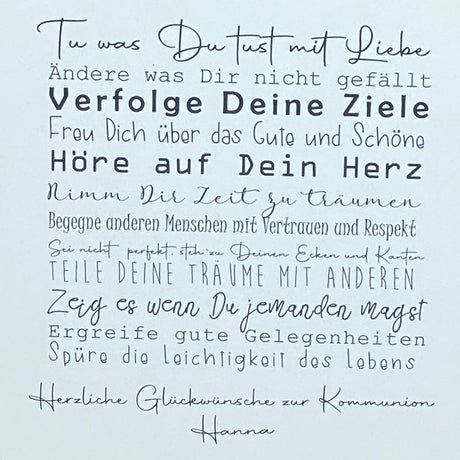 Tu was Du tust mit Liebe
Ändere was Dir nicht gefällt
Verfolge Deine Ziele
Freu Dich über das Gute und Schöne
Höre auf Dein Herz
Nimm Dir Zeit zu träumen
Begegne anderen Menschen mit Vertrauen und Respekt
Sei nicht perfekt, steh zu Deinen Ecken und Kanten
TEILE DEINE TRÄUME MIT ANDEREN
Zeig es wenn Du jemanden magst
Ergreife gute Gelegenheiten
Spüre die Leichtigkeit des Lebens
Herzliche Glückwünsche zur Kommunion
Hanna